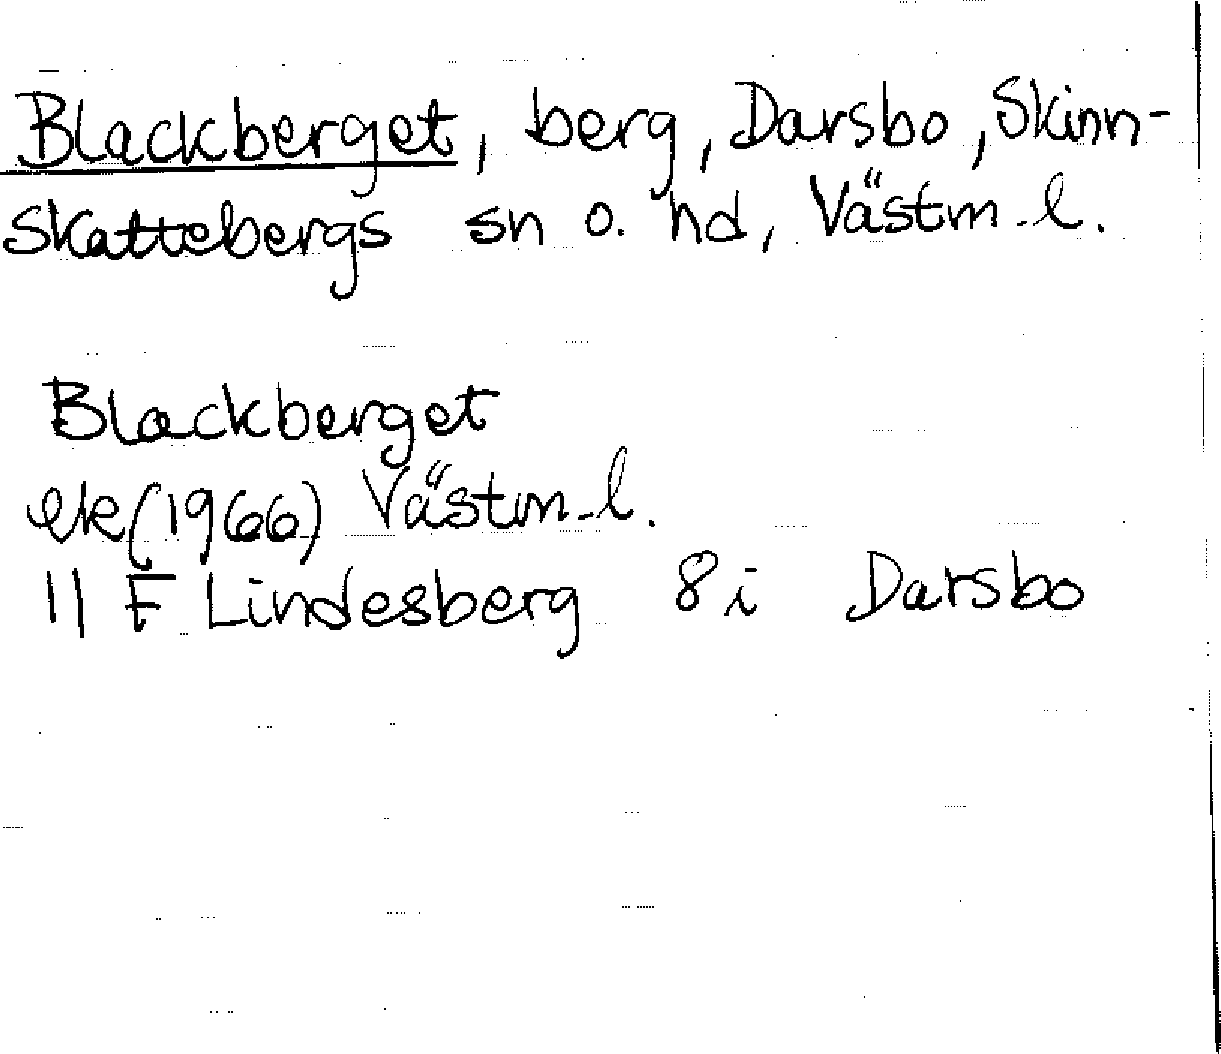 Blackberget, berg, Darsbo, Skinn-
skattebergs sn o. hd, Västm. l.
Blackberget
ek (1966) Västm. l.
11 F Lindesberg 8 i Darsbo